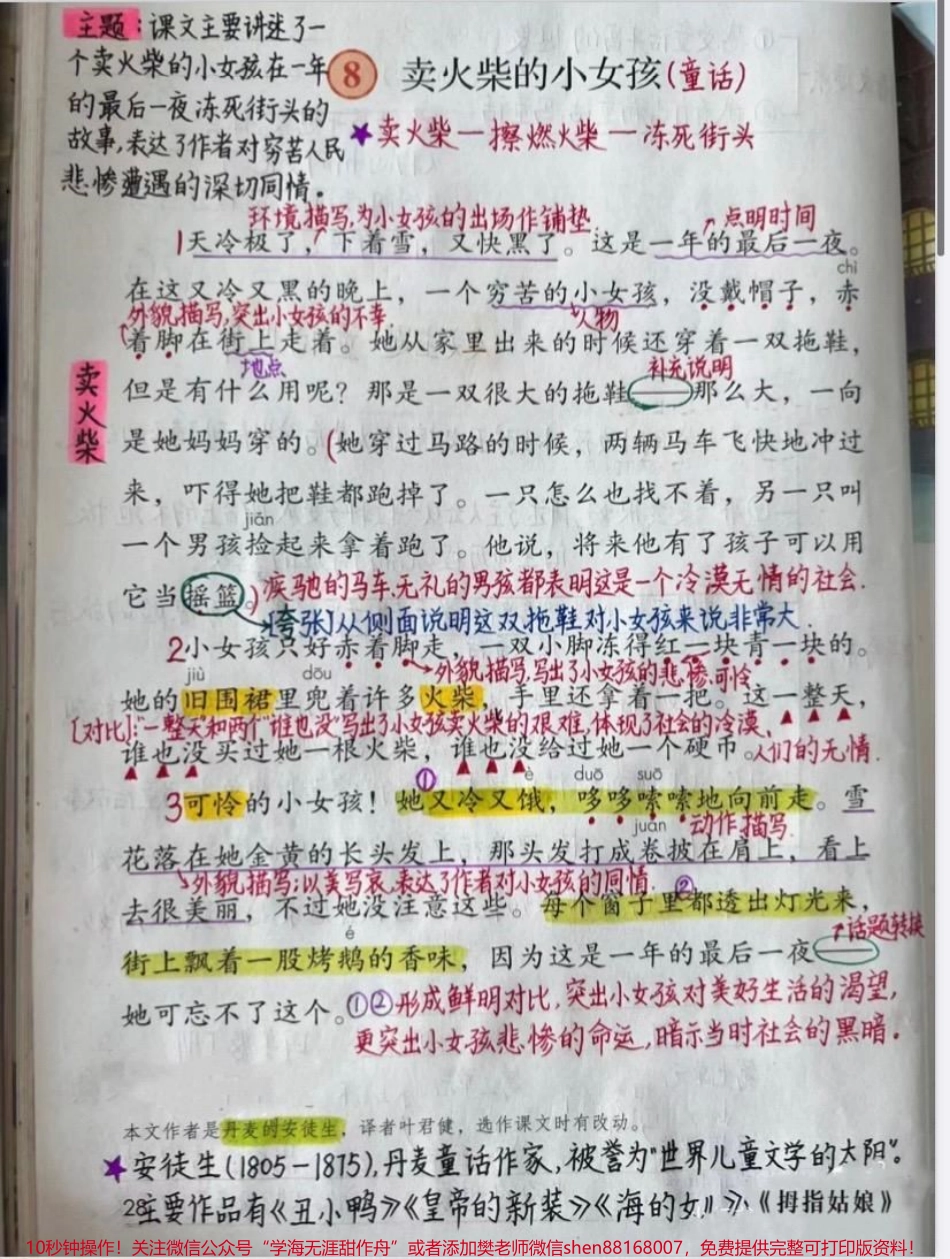 主题:课文主要讲述了一
个卖火柴的小女孩在一年
的最后一夜冻死街头的
故事,表达了作者对穷苦人民
悲惨遭遇的深切同情。
8 卖火柴的小女孩(童话)
★卖火柴一擦燃火柴一冻死街头
环境描写,为小女孩的出场作铺垫. 点明时间
1天冷极了,下着雪,又快黑了。这是一年的最后一夜。
chì
在这又冷又黑的晚上,一个穷苦的小女孩,没戴帽子,赤
外貌描写,突出小女孩的不幸 人物
着脚在街上走着。她从家里出来的时候还穿着一双拖鞋,
地点 补充说明
但是有什么用呢?那是一双很大的拖鞋——那么大,一向
卖火柴
是她妈妈穿的。(她穿过马路的时候,两辆马车飞快地冲过
来,吓得她把鞋都跑掉了。一只怎么也找不着,另一只叫
jiǎn
一个男孩捡起来拿着跑了。他说,将来他有了孩子可以用
它当摇篮。)疾驰的马车、无礼的男孩都表明这是一个冷漠无情的社会.
[夸张]从侧面说明这双拖鞋对小女孩来说非常大.
2小女孩只好赤着脚走,一双小脚冻得红一块青一块的。
外貌描写,写出了小女孩的悲惨、可怜
jiù dōu
她的旧围裙里兜着许多火柴,手里还拿着一把。这一整天,
[对比]:"一整天"和两个"谁也没"写出了小女孩卖火柴的艰难,体现了社会的冷漠、
谁也没买过她一根火柴,谁也没给过她一个硬币。人们的无情.
① è duō suō
3可怜的小女孩!她又冷又饿,哆哆嗦嗦地向前走。雪
juǎn 动作描写
花落在她金黄的长头发上,那头发打成卷披在肩上,看上
外貌描写:以美写哀,表达了作者对小女孩的同情. ②
去很美丽,不过她没注意这些。每个窗子里都透出灯光来,
é 话题转换
街上飘着一股烤鹅的香味,因为这是一年的最后一夜——
她可忘不了这个。①②形成鲜明对比,突出小女孩对美好生活的渴望,
更突出小女孩悲惨的命运,暗示当时社会的黑暗.
本文作者是丹麦的安徒生,译者叶君健,选作课文时有改动。
★安徒生(1805-1875),丹麦童话作家,被誉为"世界儿童文学的太阳"。
28 主要作品有《丑小鸭》《皇帝的新装》《海的女》《拇指姑娘》
10秒钟操作!关注微信公众号“学海无涯甜作舟”或者添加樊老师微信shen88168007,免费提供完整可打印版资料!